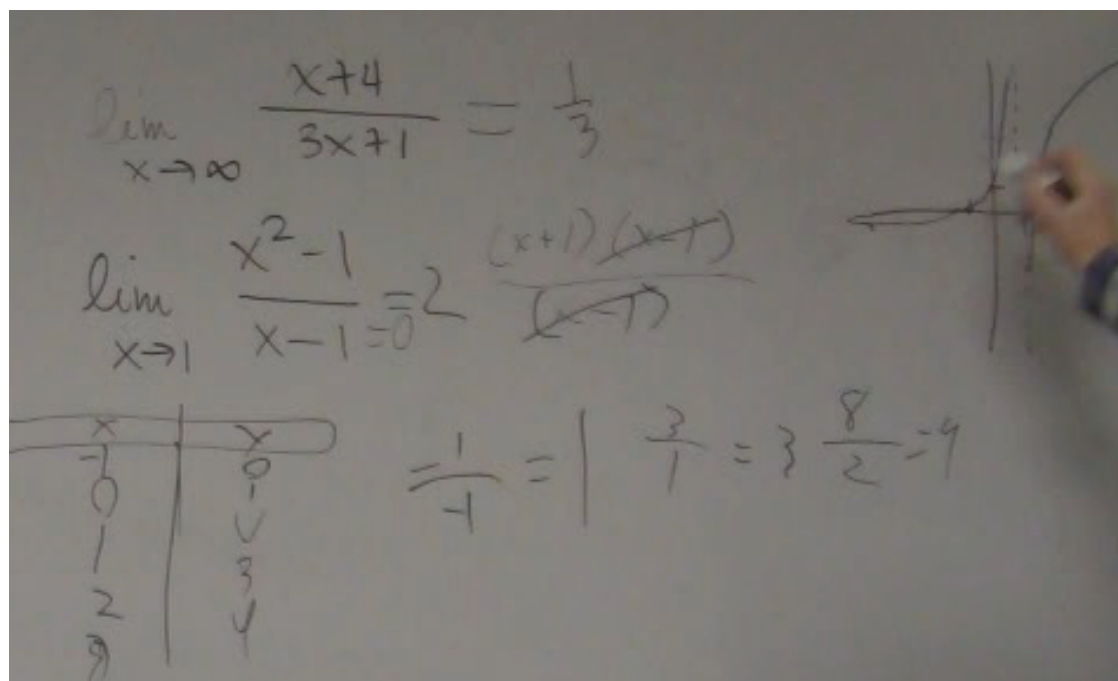 lim x→∞ x+4 / 3x+1 = 1/3
lim x→1 x²-1 / x-1 =0 =2 (x+1)(x-1) / (x-1)
x | y
-1 | 0
0 | 1
1 | U
2 | 3
3 | 4
= -1/-1 = 1 3/1 = 3 8/2 = 4